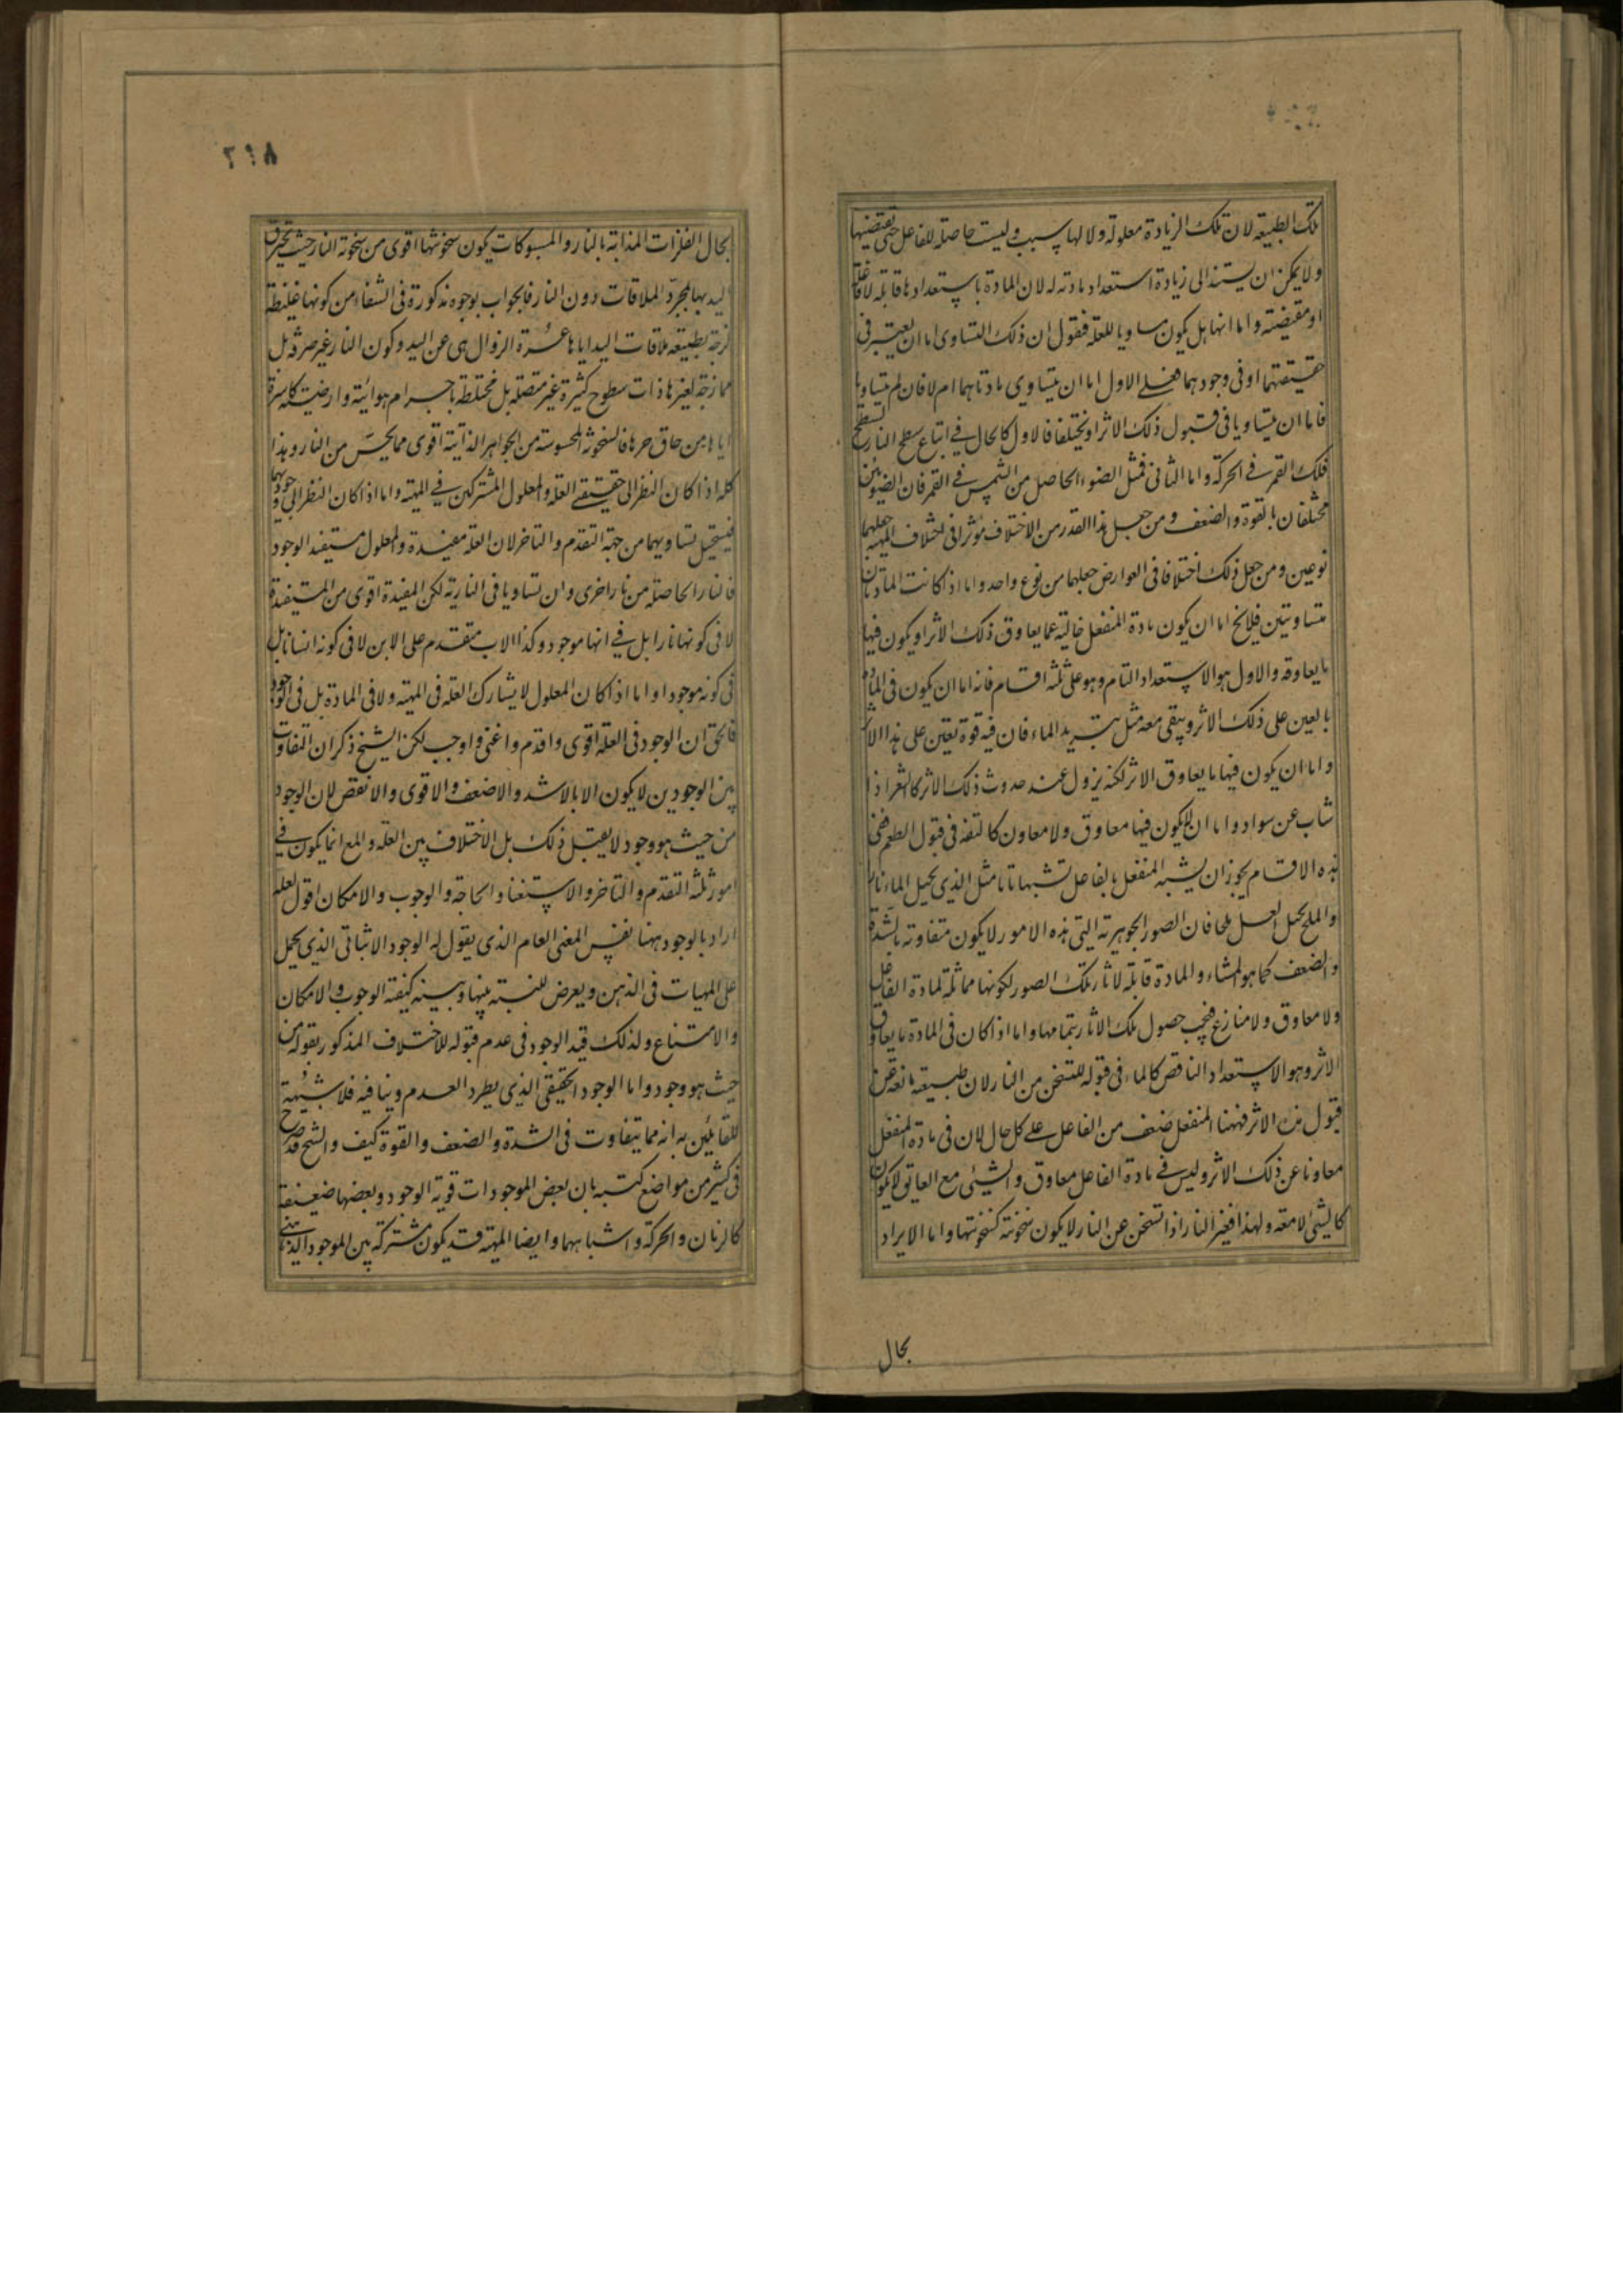 تلك الطبيعة لان تلك الزيادة معلولة ولا لها سبب وليست حاصلة للفاعل حتى تقتضيها
ولا يمكن ان يستند الى زيادة استعداد مادته له لان المادة باستعدادها قابلة لا فاعلة
او مقتضية واما انها هل يكون مساويا للعلة فنقول ان ذلك التساوى اما ان يعتبر فى
حقيقتهما او فى وجودهما فعلى الاول اما ان يتساوى مادتاهما ام لا فان لم يتساويا
فاما ان يتساويا فى قبول ذلك الاثر او يختلفا فالاول كالحال فى اتباع سطح النار لسطح
فلك القمر فى الحركة واما الثانى فمثل الضوء الحاصل من الشمس فى القمر فان الضوئين
مختلفان بالقوة والضعف ومن جعل هذا القدر من الاختلاف مؤثرا فى اختلاف المهية جعلهما
نوعين ومن جعل ذلك اختلافا فى العوارض جعلهما من نوع واحد واما اذا كانت المادتان
متساويتين فلا يخ اما ان يكون مادة المنفعل خالية عما يعاوق ذلك الاثر او يكون فيها
ما يعاوقه والاول هو الاستعداد التام وهو على ثلثة اقسام فانه اما ان يكون فى المادة
ما يعين على ذلك الاثر ويبقى معه مثل تبريد الماء فان فيه قوة تعين على هذا الاثر
واما ان يكون فيها ما يعاوق الاثر لكنه يزول عند حدوث ذلك الاثر كالشعر اذا
شاب عن سواد واما ان لا يكون فيها معاوق ولا معاون كالتفه فى قبول الطعم ففى
هذه الاقسام يجوز ان يشبه المنفعل بالفاعل تشبها تاما مثل الذى يحيل الماء نارا
والملح يحيل العسل ملحا فان الصور الجوهرية التى هذه الامور لا يكون متفاوتة بالشدة
والضعف كما هو المشاء والمادة قابلة لاثار تلك الصور لكونها مماثلة لمادة الفاعل
ولا معاوق ولا منازع فيجب حصول تلك الاثار بتمامها واما اذا كان فى المادة ما يعاوق
الاثر وهو الاستعداد الناقص كالماء فى قبوله للتسخن من النار لان طبيعته مانعة عن
قبول هذا الاثر فههنا المنفعل ضعف من الفاعل على كل حال لان فى مادة المنفعل
معاونا عن ذلك الاثر وليس فى مادة الفاعل معاوق والشيئى مع العايق لا يكون
كالشيئ لا معه ولهذا فغير النار اذا تسخن عن النار لا يكون سخونته كسخونتها واما الايراد
بحال
٢١٨
بحال الفلزات المذابة بالنار والمسبوكات يكون سخونتها اقوى من سخونة النار حيث يحرق
اليد بها بمجرد الملاقات دون النار فالجواب بوجوه مذكورة فى الشفاء من كونها غليظة
لزجة بطيئة ملاقات اليد اياها عسرة الزوال هى عن اليد وكون النار غير صرفة بل
ممازجة لغيرها ذات سطوح كثيرة غير متصلة بل مختلطة باجرام هوائية وارضية كاسرة
اياها من حاق حرها فالسخونة المحسوسة من الجواهر الذائبة اقوى مما يحس من النار وهذا
كله اذا كان النظر الى حقيقتى العلة والمعلول المشتركين فى المهية واما اذا كان النظر الى وجوديهما
فيستحيل تساويهما من جهة التقدم والتاخر لان العلة مفيدة والمعلول مستفيد الوجود
فالنار الحاصلة من نار اخرى وان تساويا فى النارية لكن المفيدة اقوى من المستفيدة
لا فى كونها نارا بل فى انها موجود وكذا الاب متقدم على الابن لا فى كونه انسانا بل
فى كونه موجودا واما اذا كان المعلول لا يشارك العلة فى المهية ولا فى المادة بل فى الوجود
فالحق ان الوجود فى العلة اقوى واقدم واغنى واوجب لكن الشيخ ذكر ان التفاوت
بين الوجودين لا يكون الا بالاشد والاضعف والاقوى والانقص لان الوجود
من حيث هو وجود لا يقبل ذلك بل الاختلاف بين العلة والمع انما يكون فى
امور ثلثة التقدم والتاخر والاستغنا والحاجة والوجوب والامكان اقول لعله
اراد بالوجود ههنا نفس المعنى العام الذى يقول له الوجود الاثباتى الذى يحمل
على المهيات فى الذهن ويعرض للنسبة بينها وبينه كيفية الوجوب والامكان
والامتناع ولذلك قيد الوجود فى عدم قبوله للاختلاف المذكور بقوله من
حيث هو وجود واما الوجود الحقيقى الذى يطرد العدم وينافيه فلا شبهة
للقائلين به انه مما يتفاوت فى الشدة والضعف والقوة كيف والشيخ قد صرح
فى كثير من مواضع كتبه بان بعض الموجودات قوية الوجود وبعضها ضعيفة
كالزمان والحركة واشباههما وايضا المهية قد يكون مشتركة بين الموجود الذهنى